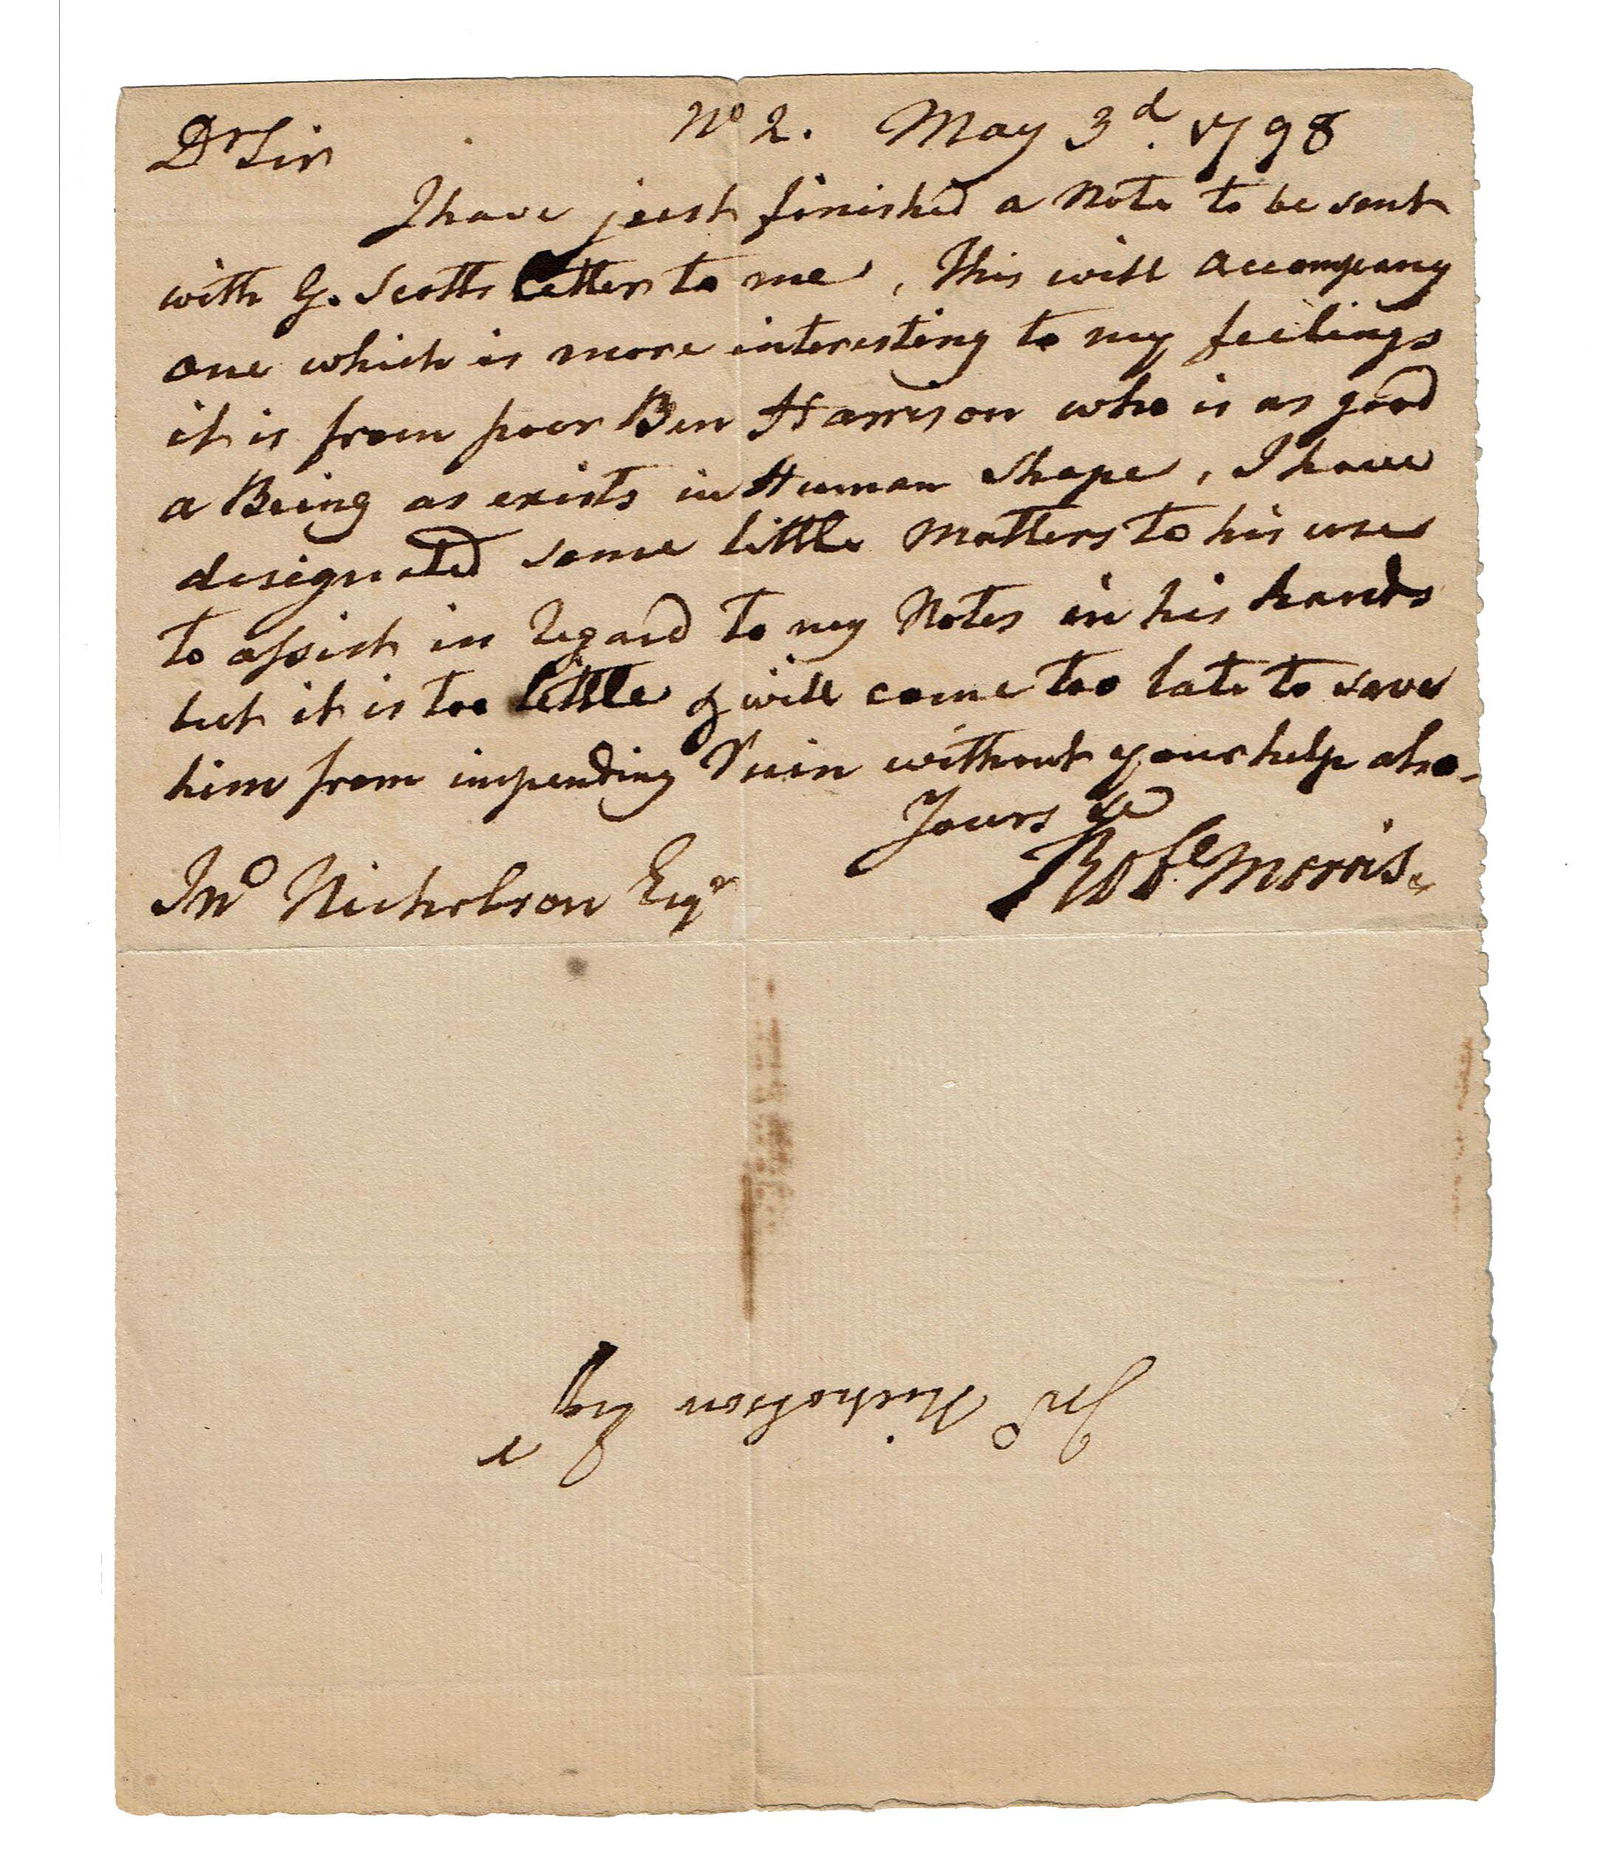 No 2. May 3d. 1798
Dr Sir
I have just finished a Note to be sent
with G. Scotts letter to me, This will accompany
one which is more interesting to my feelings
it is from poor Ben Harrison who is as good
a Being as exists in Human Shape, I have
designated some little Matters to his use
to assist in regard to my Notes in his hands
but it is too little & will come too late to save
him from impending Ruin without your help also.
Yours &c
Robt Morris
Jno Nicholson Esqr
Jno Nicholson Esqr